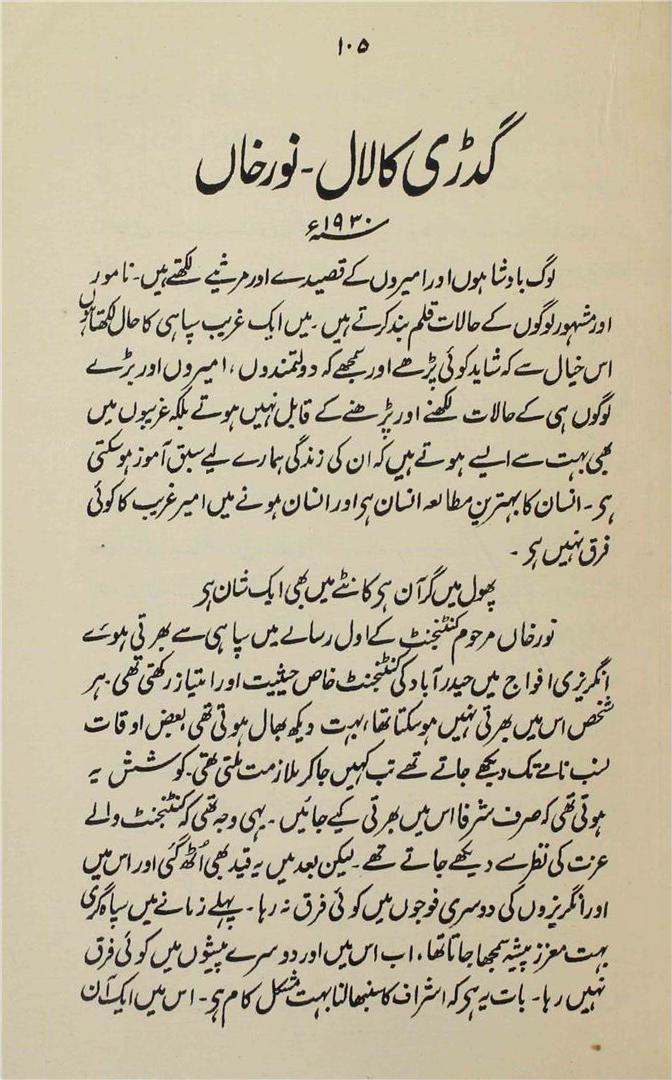 ۱۰۵
گدڑی کا لال ۔ نور خاں
سنہ ۱۹۳۰ء
لوگ بادشاہوں اور امیروں کے قصیدے اور مرثیے لکھتے ہیں۔ نامور
اور مشہور لوگوں کے حالات قلم بند کرتے ہیں۔ میں ایک غریب سپاہی کا حال لکھتا ہوں
اس خیال سے کہ شاید کوئی پڑھے اور سمجھے کہ دولتمندوں، امیروں اور بڑے
لوگوں ہی کے حالات لکھنے اور پڑھنے کے قابل نہیں ہوتے بلکہ غریبوں میں
بھی بہت سے ایسے ہوتے ہیں کہ ان کی زندگی ہمارے لیے سبق آموز ہو سکتی
ہی۔ انسان کا بہترین مطالعہ انسان ہی اور انسان ہونے میں امیر غریب کا کوئی
فرق نہیں ہی ۔
پھول میں گر آن ہی کانٹے میں بھی ایک شان ہی
نور خاں مرحوم کنٹنجنٹ کے اول رسالے میں سپاہی سے بھرتی ہوئے
انگریزی افواج میں حیدرآباد کی کنٹنجنٹ خاص حیثیت اور امتیاز رکھتی تھی۔ ہر
شخص اس میں بھرتی نہیں ہو سکتا تھا، بہت دیکھ بھال ہوتی تھی۔ بعض اوقات
نسب نامے تک دیکھے جاتے تھے تب کہیں جا کر ملازمت ملتی تھی۔ کوشش یہ
ہوتی تھی کہ صرف شرفا اس میں بھرتی کیے جائیں۔ یہی وجہ تھی کہ کنٹنجنٹ والے
عزت کی نظر سے دیکھے جاتے تھے۔ لیکن بعد میں یہ قید بھی اُٹھ گئی اور اس میں
اور انگریزوں کی دوسری فوجوں میں کوئی فرق نہ رہا۔ پہلے زمانے میں سپاہ گری
بہت معزز پیشہ سمجھا جاتا تھا، اب اس میں اور دوسرے پیشوں میں کوئی فرق
نہیں رہا۔ بات یہ ہی کہ اشراف کا سنبھالنا بہت مشکل کام ہی۔ اس میں ایک آن